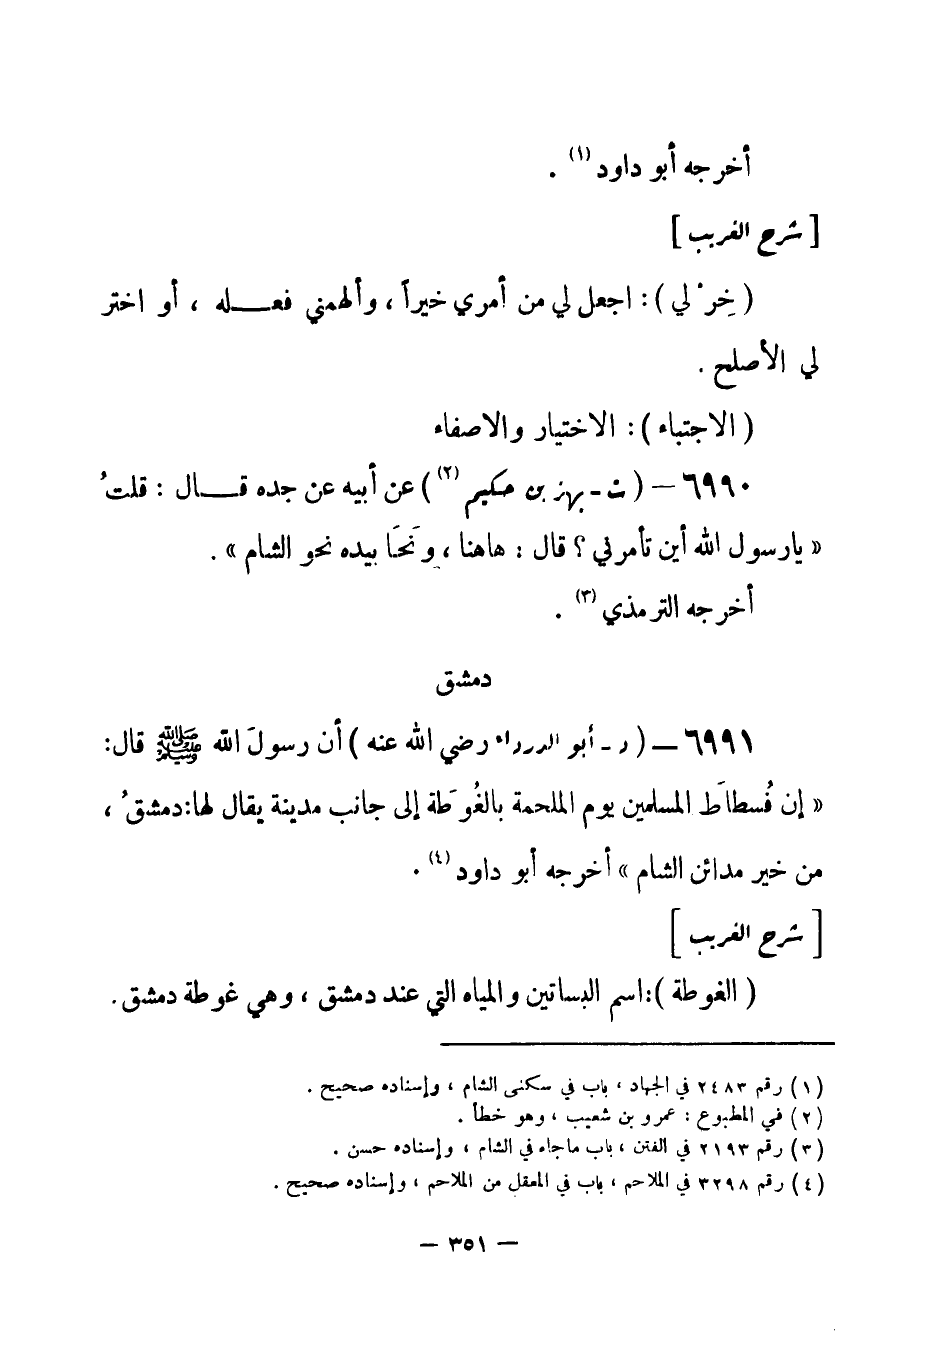 أخرجه أبو داود (١) .
[ شرح الغريب ]
( خِرْ لي ) : اجعل لي من أمري خيراً ، وألهمني فعـــله ، أو اختر
لي الأصلح .
( الاجتباء ) : الاختيار والاصفاء
٦٩٩٠ – ( ت - بهز بن حكيم (٢) ) عن أبيه عن جده قـــال : قلتُ
« يارسول الله أين تأمرني ؟ قال : هاهنا ، ونَحَا بيده نحو الشام » .
أخرجه الترمذي (٣) .
دمشق
٦٩٩١ – ( د - أبو الدرداء رضي الله عنه ) أن رسولَ الله ﷺ قال:
« إن فُسطاَط المسلمين يوم الملحمة بالغُوَطة إلى جانب مدينة يقال لها:دمشقُ ،
من خير مدائن الشام » أخرجه أبو داود (٤) .
[ شرح الغريب ]
( الغوطة ):اسم البساتين والمياه التي عند دمشق ، وهي غوطة دمشق .
(١) رقم ٢٤٨٣ في الجهاد ، باب في سكنى الشام ، وإسناده صحيح .
(٢) في المطبوع : عمرو بن شعيب ، وهو خطأ .
(٣) رقم ٢١٩٣ في الفتن ، باب ماجاء في الشام ، وإسناده حسن .
(٤) رقم ٣٢٩٨ في الملاحم ، باب في المعقل من الملاحم ، وإسناده صحيح .
– ٣٥١ –